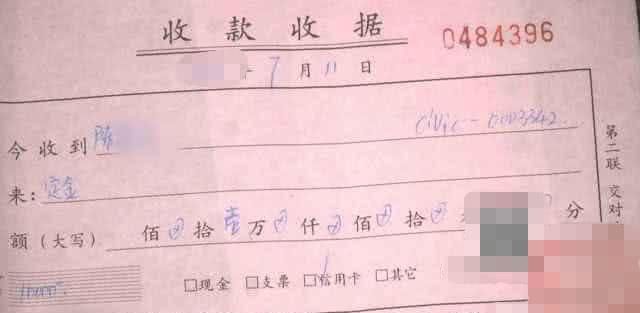 收款收据 0484396
年 7月11日
今收到 陈 Civic-0003342
来: 定金
额(大写) 佰 拾壹万 仟 佰 拾 分
□现金 □支票 □信用卡 □其它
第二联 交对